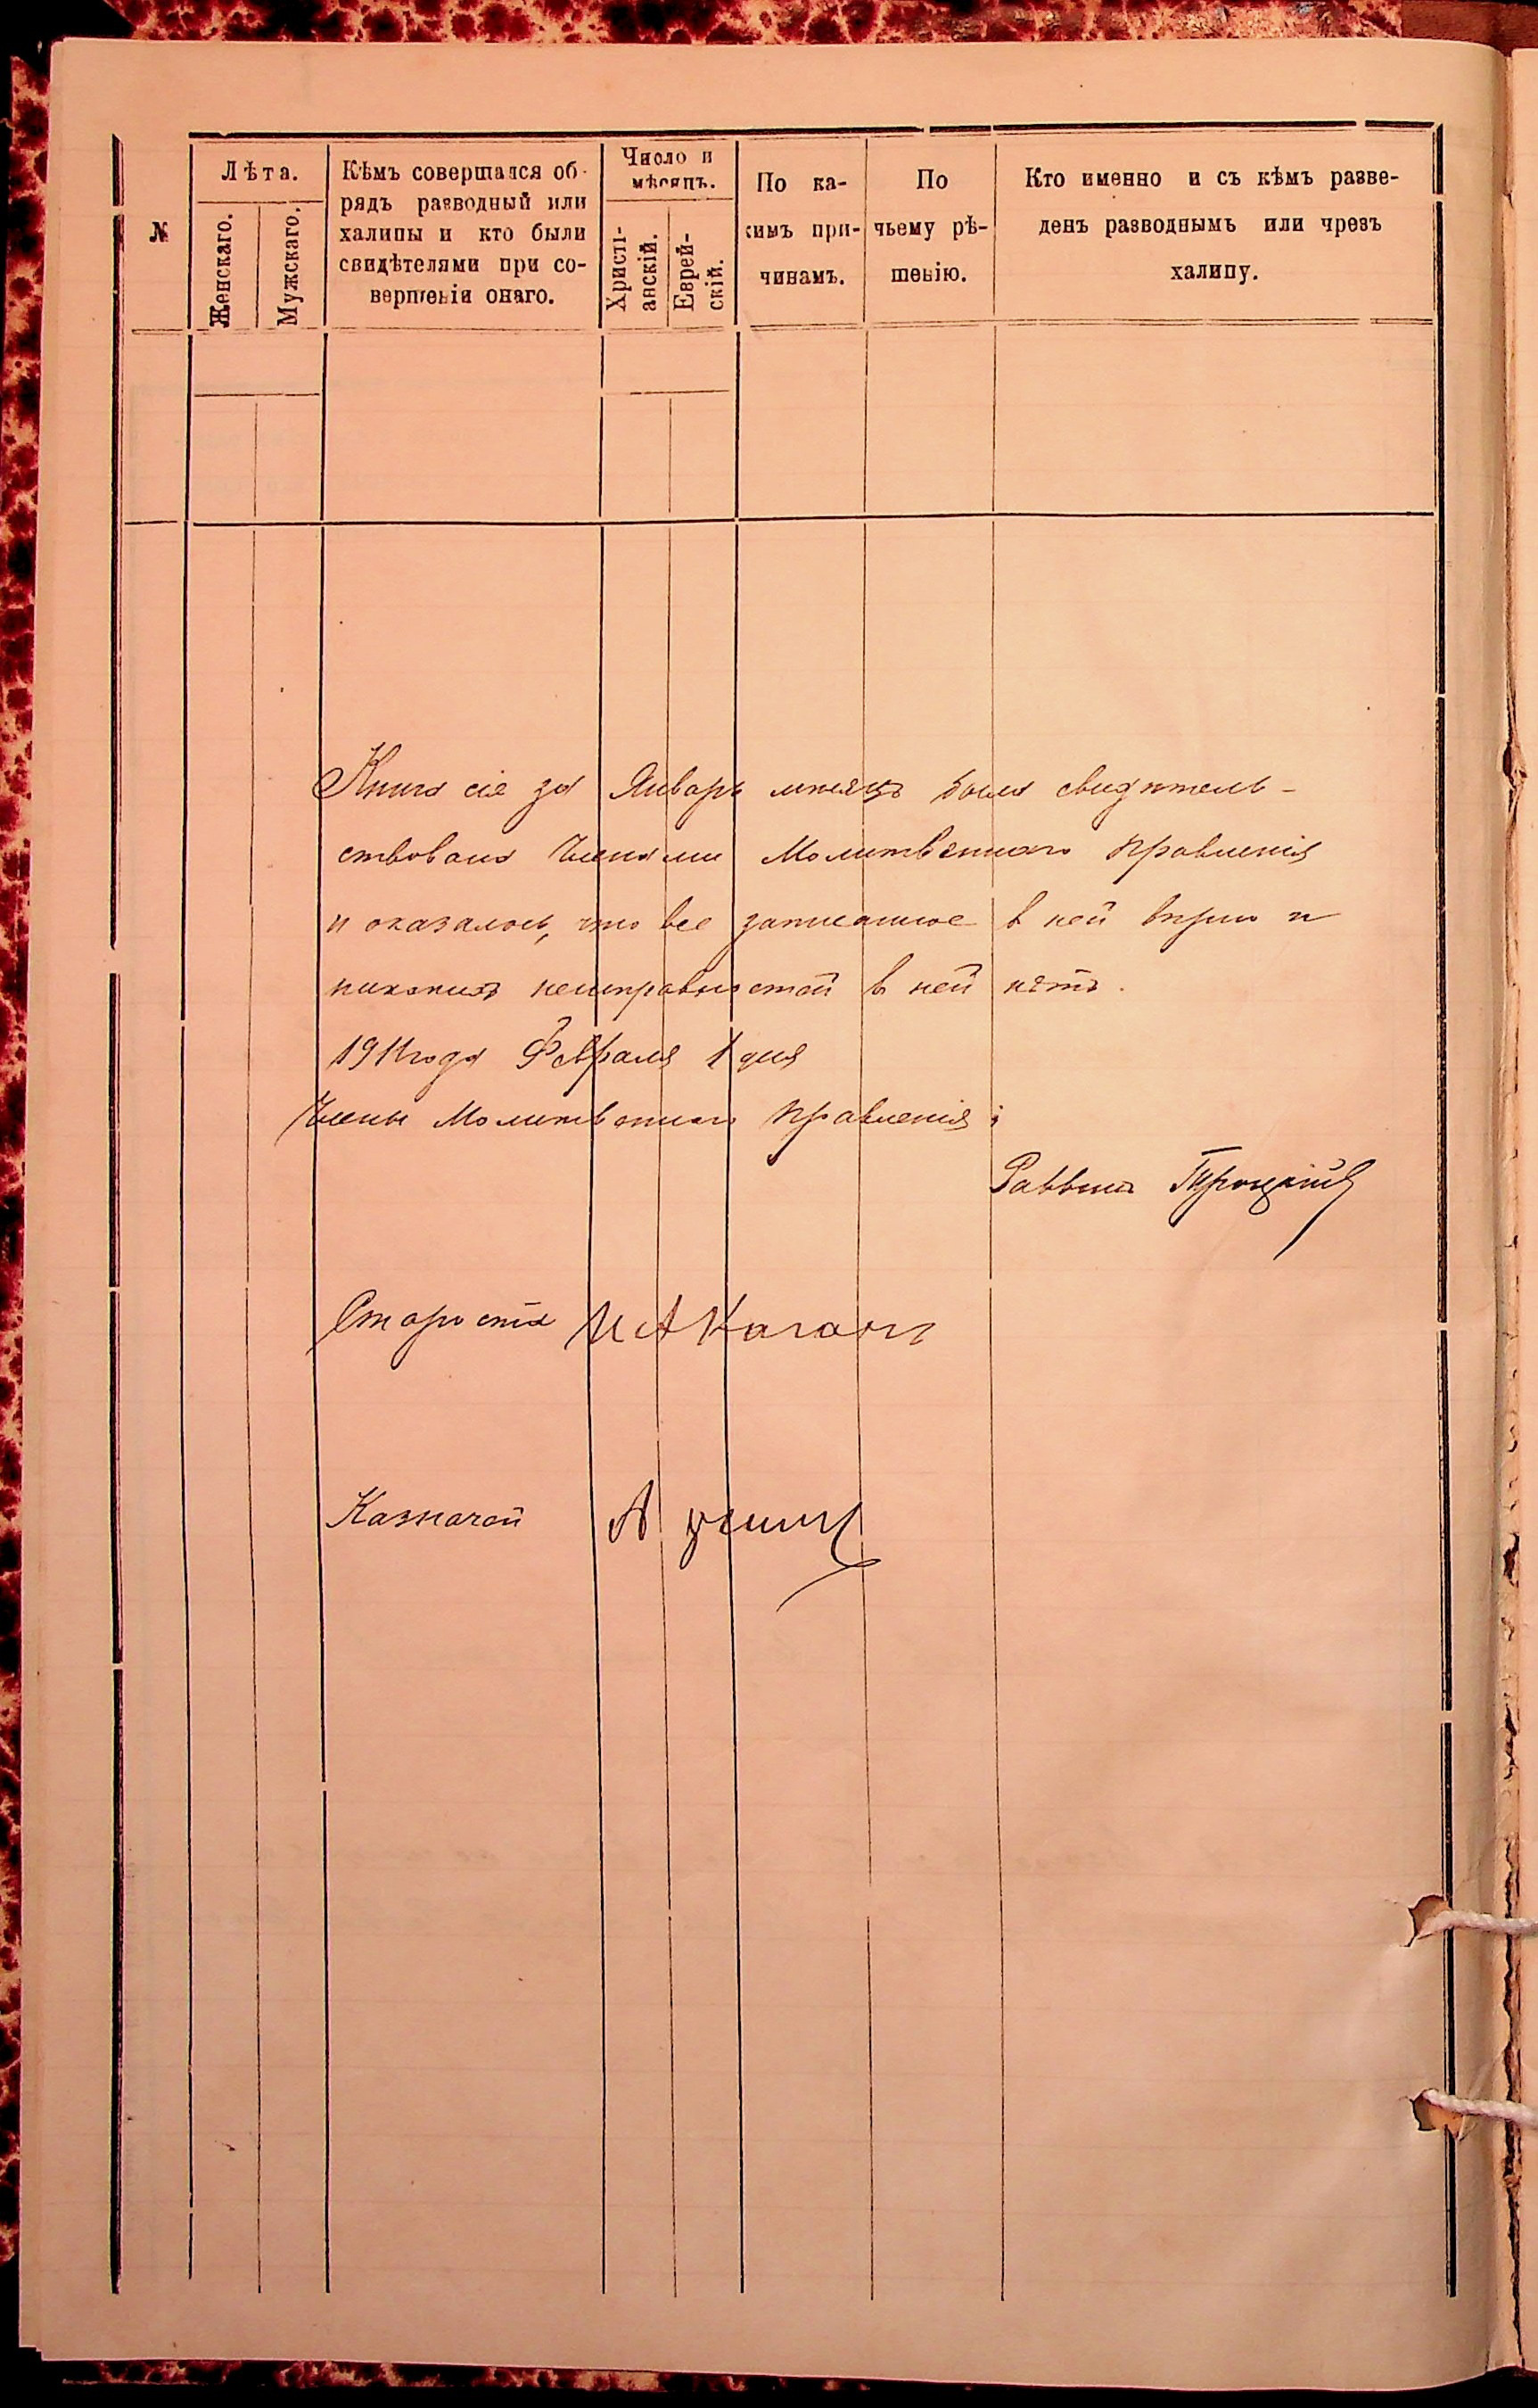 №
Лѣта.
Женскаго.
Мужскаго.
Кѣмъ совершался об-
рядъ разводный или
халицы и кто были
свидѣтелями при со-
вершеніи онаго.
Число и
мѣсяцъ.
Христі-
анскій.
Еврей-
скій.
По ка-
кимъ при-
чинамъ.
По
чьему рѣ-
шенію.
Кто именно и съ кѣмъ разве-
денъ разводнымъ или чрезъ
халицу.
Книга сія за Январь мѣсяцъ была свидѣтель-
ствована Членами Молитвеннаго Правленія
и оказалось, что все записанное в ней вѣрно и
никакихъ неисправностей в ней нѣтъ.
1911 года Февраля 1 дня
Члены Молитвеннаго Правленія:
Раввинъ Троцкій
Староста И А Каганъ
Казначей А